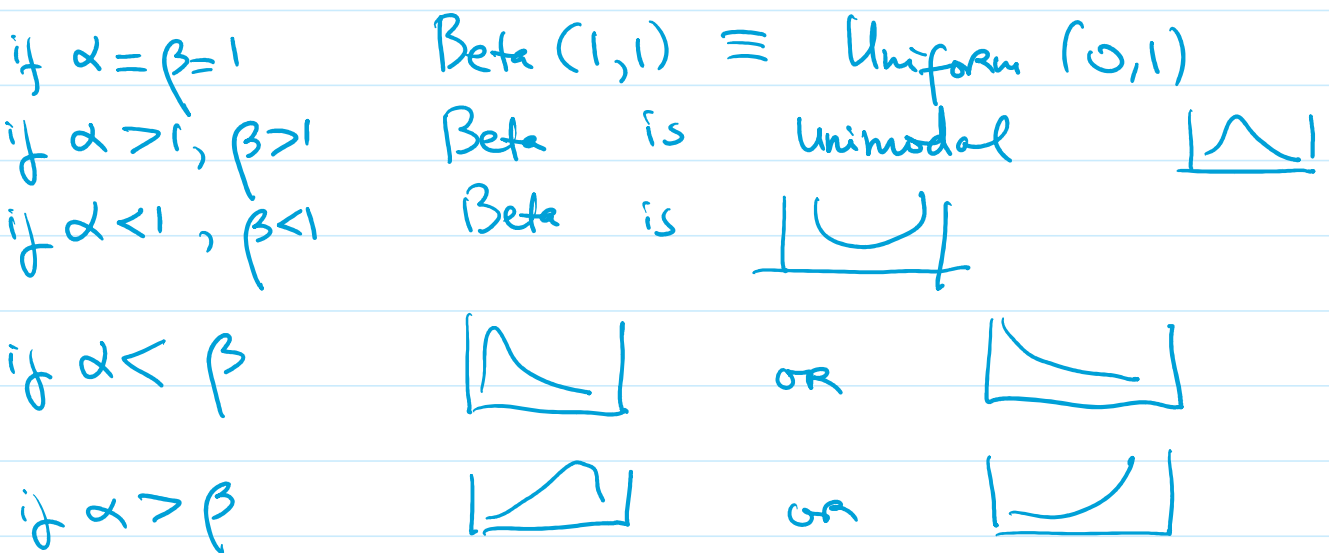 if α = β = 1 Beta (1,1) ≡ Uniform (0,1)
if α > 1, β > 1 Beta is unimodal
if α < 1, β < 1 Beta is
if α < β OR
if α > β OR